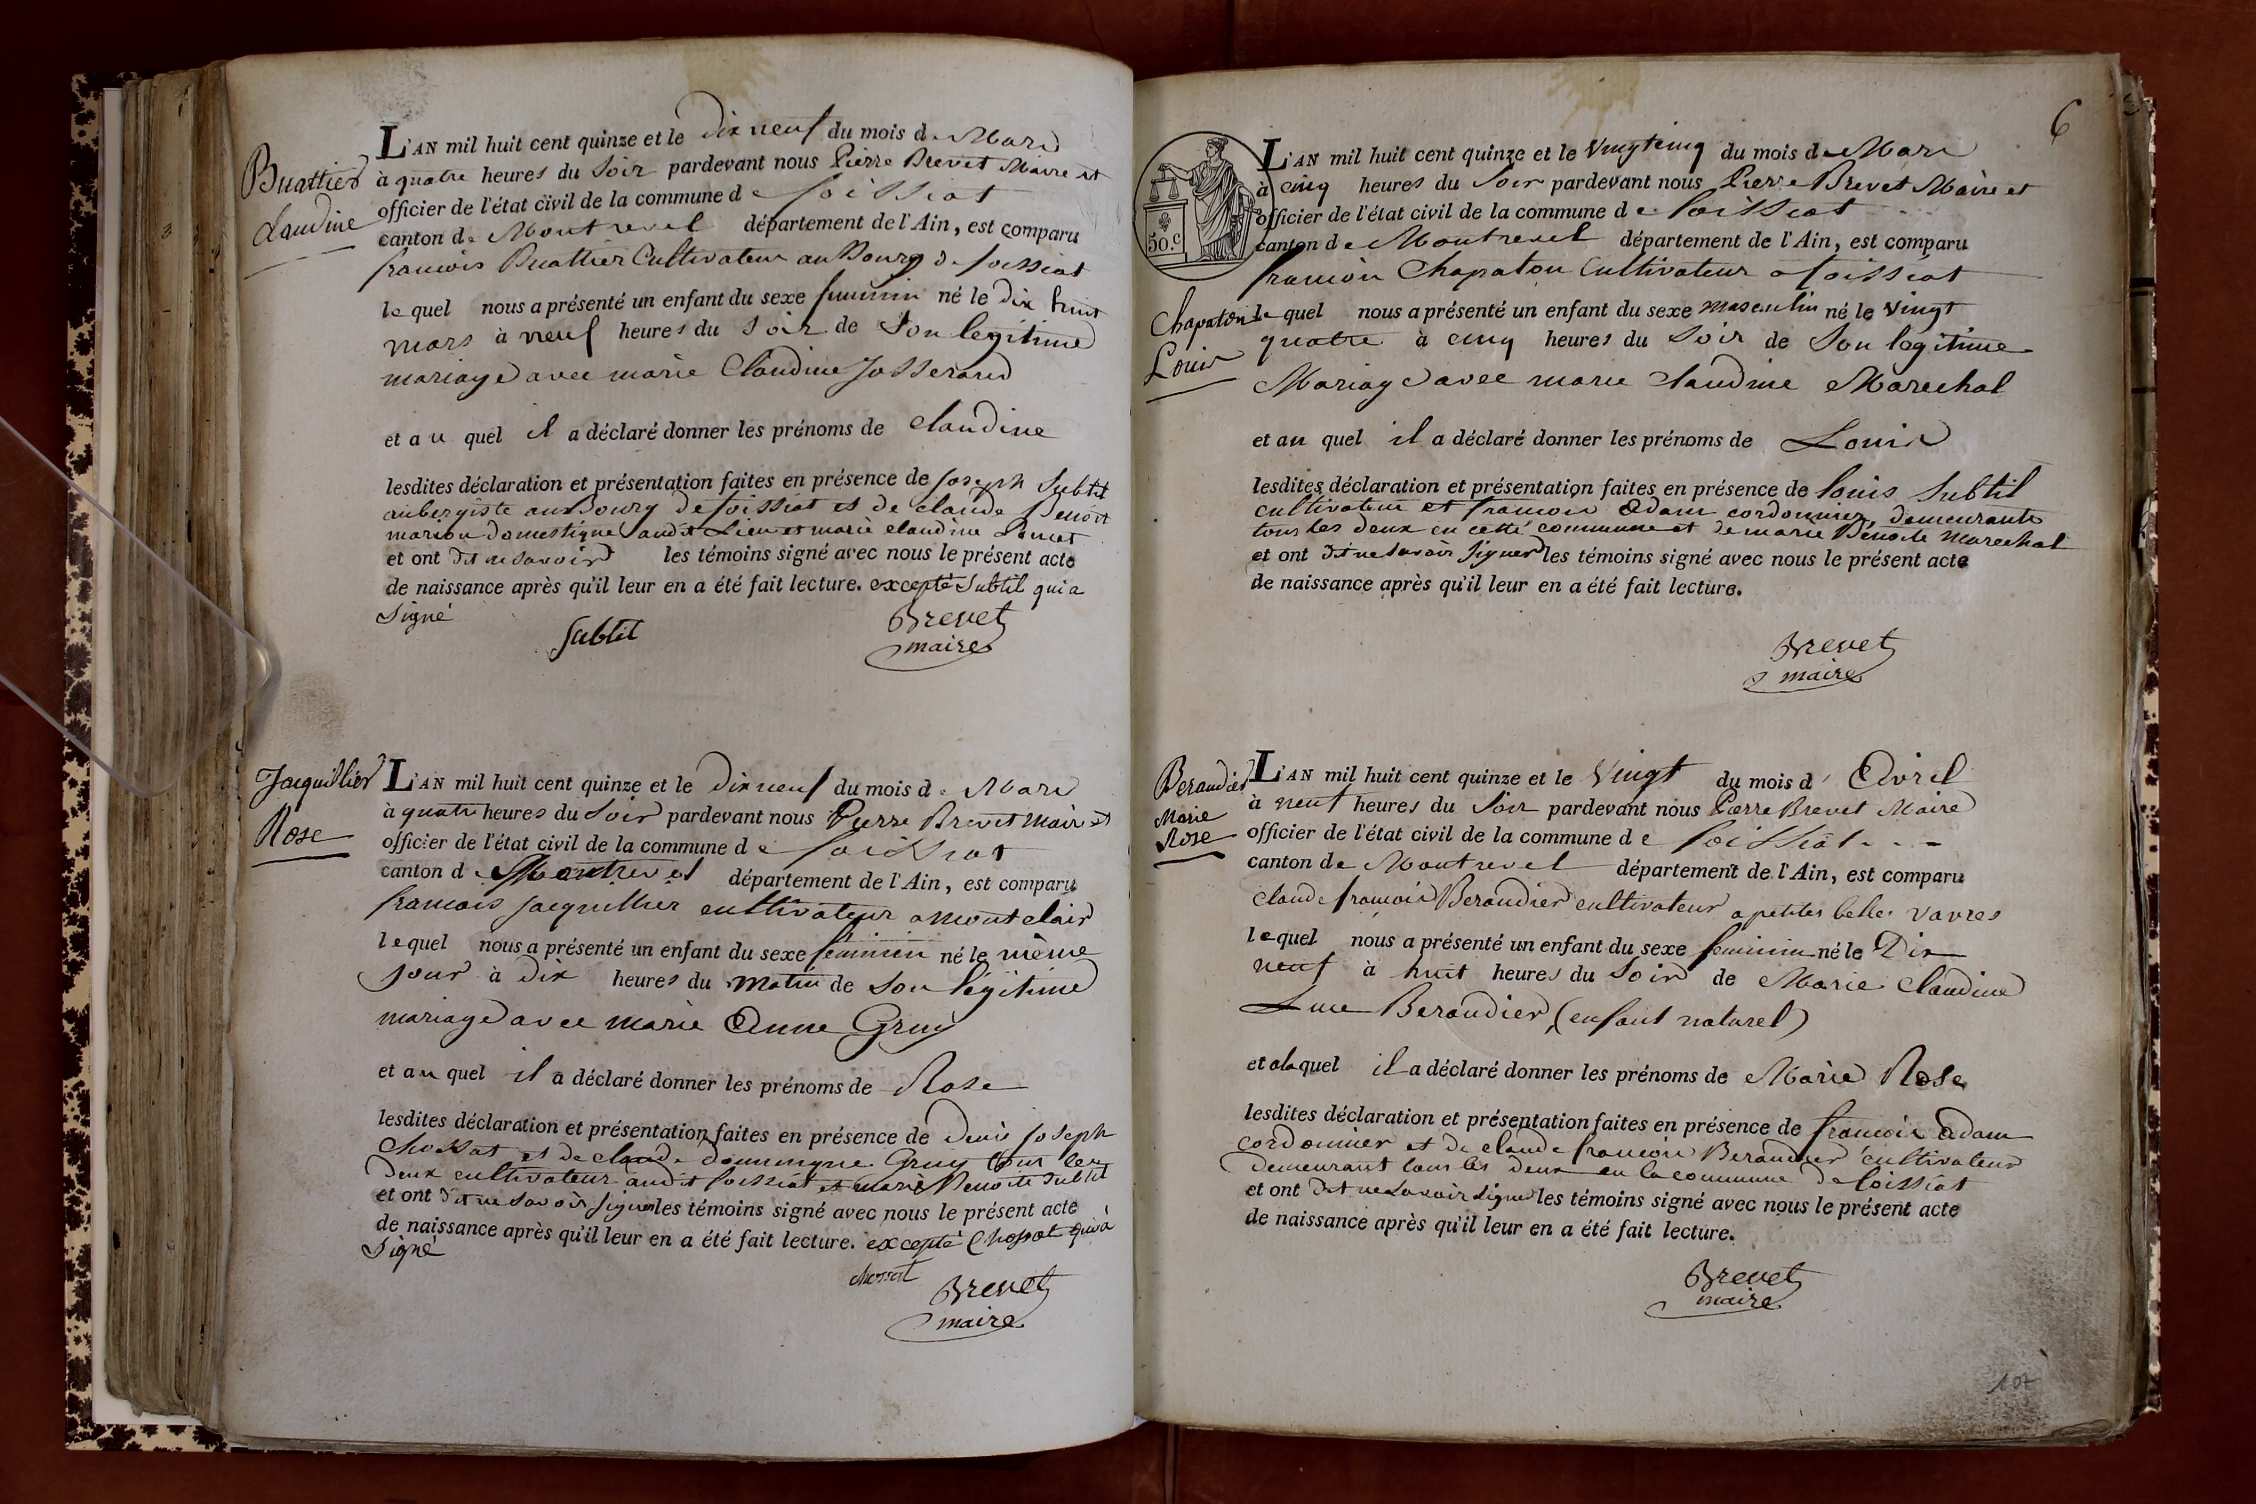 Buattier
Claudine
L'AN mil huit cent quinze et le dix neuf du mois de Mars
à quatre heures du Soir pardevant nous Pierre Brevet Maire et
officier de l'état civil de la commune de foissiat
canton de Montrevel département de l'Ain, est comparu
francois Buattier Cultivateur au Bourg de foissiat
lequel nous a présenté un enfant du sexe feminin né le dix huit
mars à neuf heures du soir de Son legitime
mariage avec marie Claudine Josserand
et au quel il a déclaré donner les prénoms de Claudine
lesdites déclaration et présentation faites en présence de joseph Subtil
aubergiste au Bourg de foissiat et de claude Benoit
marion domestique audit Lieu et marie claudine Poncet
et ont dit ne savoir les témoins signé avec nous le présent acte
de naissance après qu'il leur en a été fait lecture. excepté Subtil qui a
Signé
Subtil
Brevet
maire
Jacquillier
Rose
L'AN mil huit cent quinze et le dix neuf du mois de Mars
à quatre heures du Soir pardevant nous Pierre Brevet Maire et
officier de l'état civil de la commune de foissiat
canton de Montrevel département de l'Ain, est comparu
francois jacquillier cultivateur a montclair
lequel nous a présenté un enfant du sexe feminin né le même
jour à dix heures du matin de Son légitime
mariage avec marie Anne Gruy
et au quel il a déclaré donner les prénoms de Rose
lesdites déclaration et présentation faites en présence de Denis joseph
Chossat et de claude dominique Gruy tous les
deux cultivateur audit foissiat et marie Benoite Subtil
et ont dit ne savoir signer les témoins signé avec nous le présent acte
de naissance après qu'il leur en a été fait lecture. excepté Chossat qui a
Signé
chossat
Brevet
maire
6
50.c
Chapaton
Louis
L'AN mil huit cent quinze et le Vingtcinq du mois de Mars
à cinq heures du Soir pardevant nous Pierre Brevet Maire et
officier de l'état civil de la commune de foissiat
canton de Montrevel département de l'Ain, est comparu
francois Chapaton Cultivateur a foissiat
lequel nous a présenté un enfant du sexe masculin né le vingt
quatre à cinq heures du Soir de Son legitime
Mariage avec marie Claudine Marechal
et au quel il a déclaré donner les prénoms de Louis
lesdites déclaration et présentation faites en présence de louis Subtil
cultivateur et francois Adam cordonnier, demeurants
tous les deux en cette commune et de marie Benoite Marechal
et ont dit ne savoir signer les témoins signé avec nous le présent acte
de naissance après qu'il leur en a été fait lecture.
Brevet
maire
Beraudier
Marie
Rose
L'AN mil huit cent quinze et le Vingt du mois d'Avril
à neuf heures du Soir pardevant nous Pierre Brevet Maire
officier de l'état civil de la commune de foissiat
canton de Montrevel département de l'Ain, est comparu
claude francois Beraudier cultivateur a petites belles vavres
lequel nous a présenté un enfant du sexe feminin né le Dix
neuf à huit heures du Soir de Marie Claudine
Luce Beraudier (enfant naturel)
et alaquel il a déclaré donner les prénoms de Marie Rose
lesdites déclaration et présentation faites en présence de francois Adam
cordonnier et de claude francois Beraudier cultivateur
demeurant tous les deux en la commune de foissiat
et ont dit ne savoir signer les témoins signé avec nous le présent acte
de naissance après qu'il leur en a été fait lecture.
Brevet
maire
107